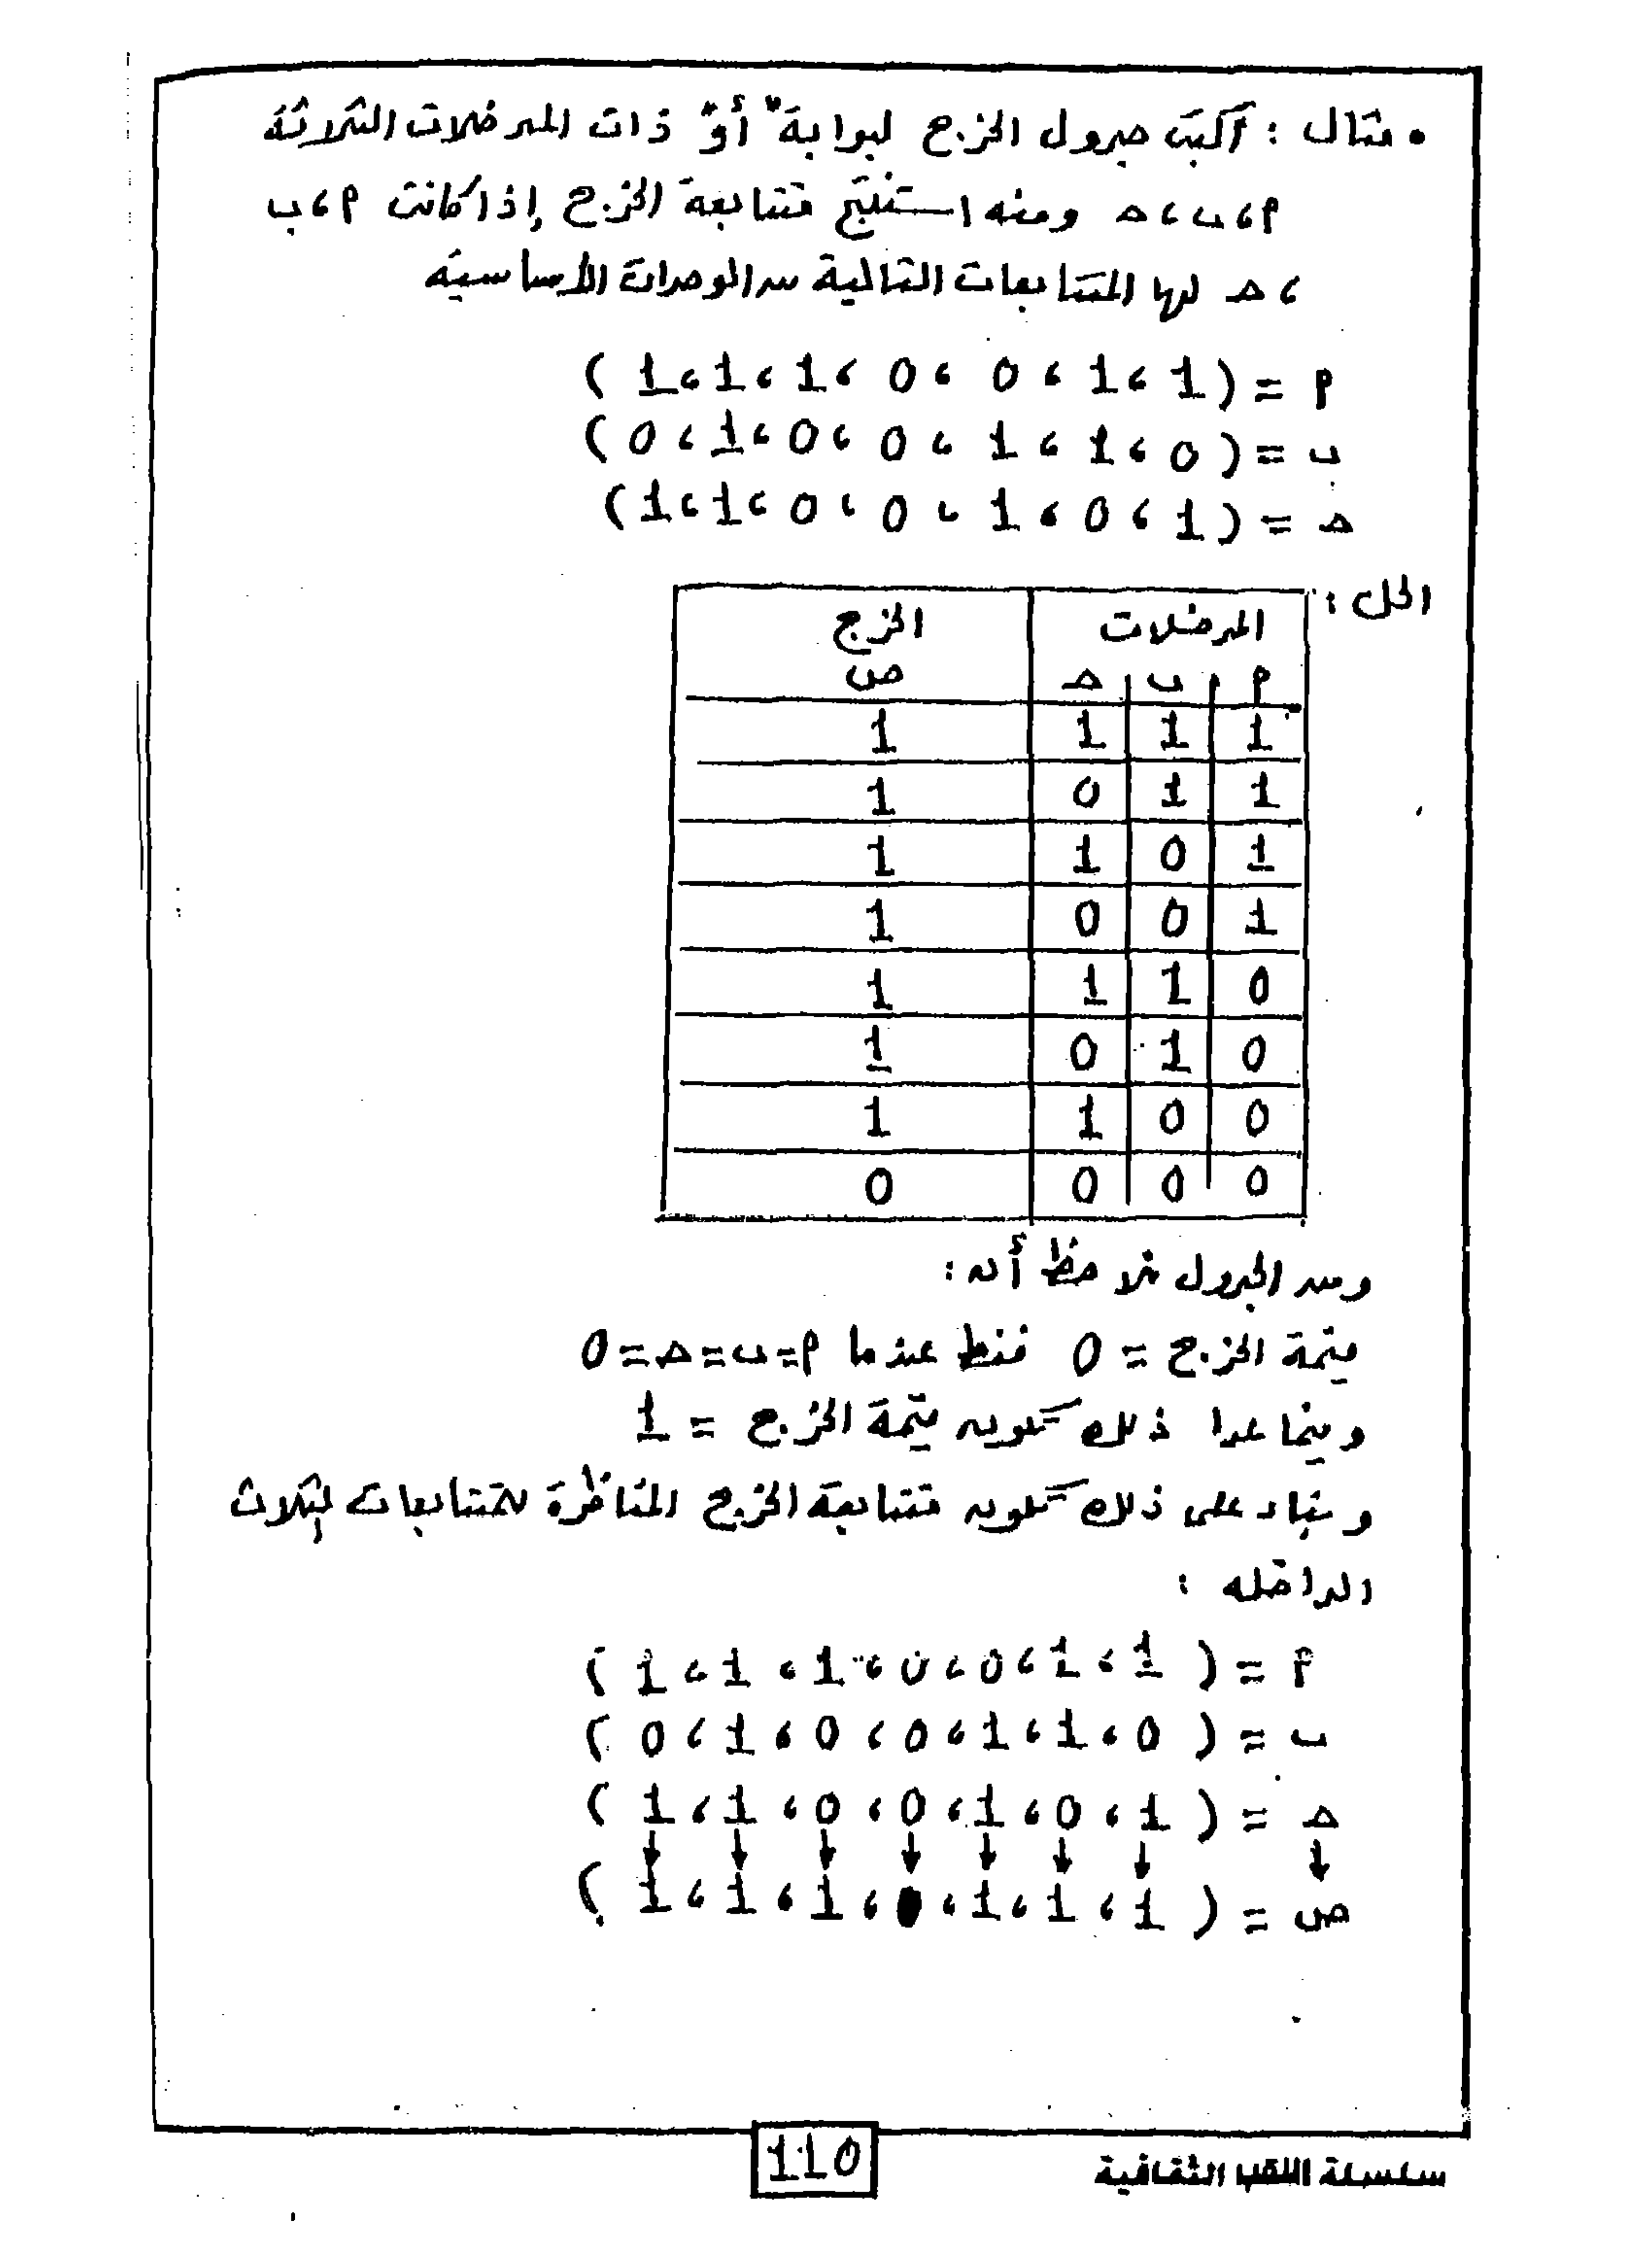 • مثال : أكتب جدول الخرج لبوابة "أو" ذات المدخلات الثلاثة
أ ، ب ، حـ ومنه استنتج متتابعة الخرج إذا كانت أ ، ب
، حـ لها المتتابعات التالية من الوحدات الأساسية
أ = ( 1 ، 1 ، 0 ، 0 ، 1 ، 1 ، 1 )
ب = ( 0 ، 1 ، 1 ، 0 ، 0 ، 1 ، 0 )
حـ = ( 1 ، 0 ، 1 ، 0 ، 0 ، 1 ، 1 )
الحل :
المدخلات الخرج
أ ب حـ ص
1 1 1 1
1 1 0 1
1 0 1 1
1 0 0 1
0 1 1 1
0 1 0 1
0 0 1 1
0 0 0 0
ومن الجدول نلاحظ أن :
قيمة الخرج = 0 فقط عندما أ = ب = حـ = 0
وفيما عدا ذلك تكون قيمة الخرج = 1
وبناء على ذلك تكون متتابعة الخرج المناظرة للمتتابعات الثلاث
الداخله :
أ = ( 1 ، 1 ، 0 ، 0 ، 1 ، 1 ، 1 )
ب = ( 0 ، 1 ، 1 ، 0 ، 0 ، 1 ، 0 )
حـ = ( 1 ، 0 ، 1 ، 0 ، 0 ، 1 ، 1 )
↓ ↓ ↓ ↓ ↓ ↓ ↓ ↓
ص = ( 1 ، 1 ، 1 ، 0 ، 1 ، 1 ، 1 )
سلسلة اللقب الثقافية
110